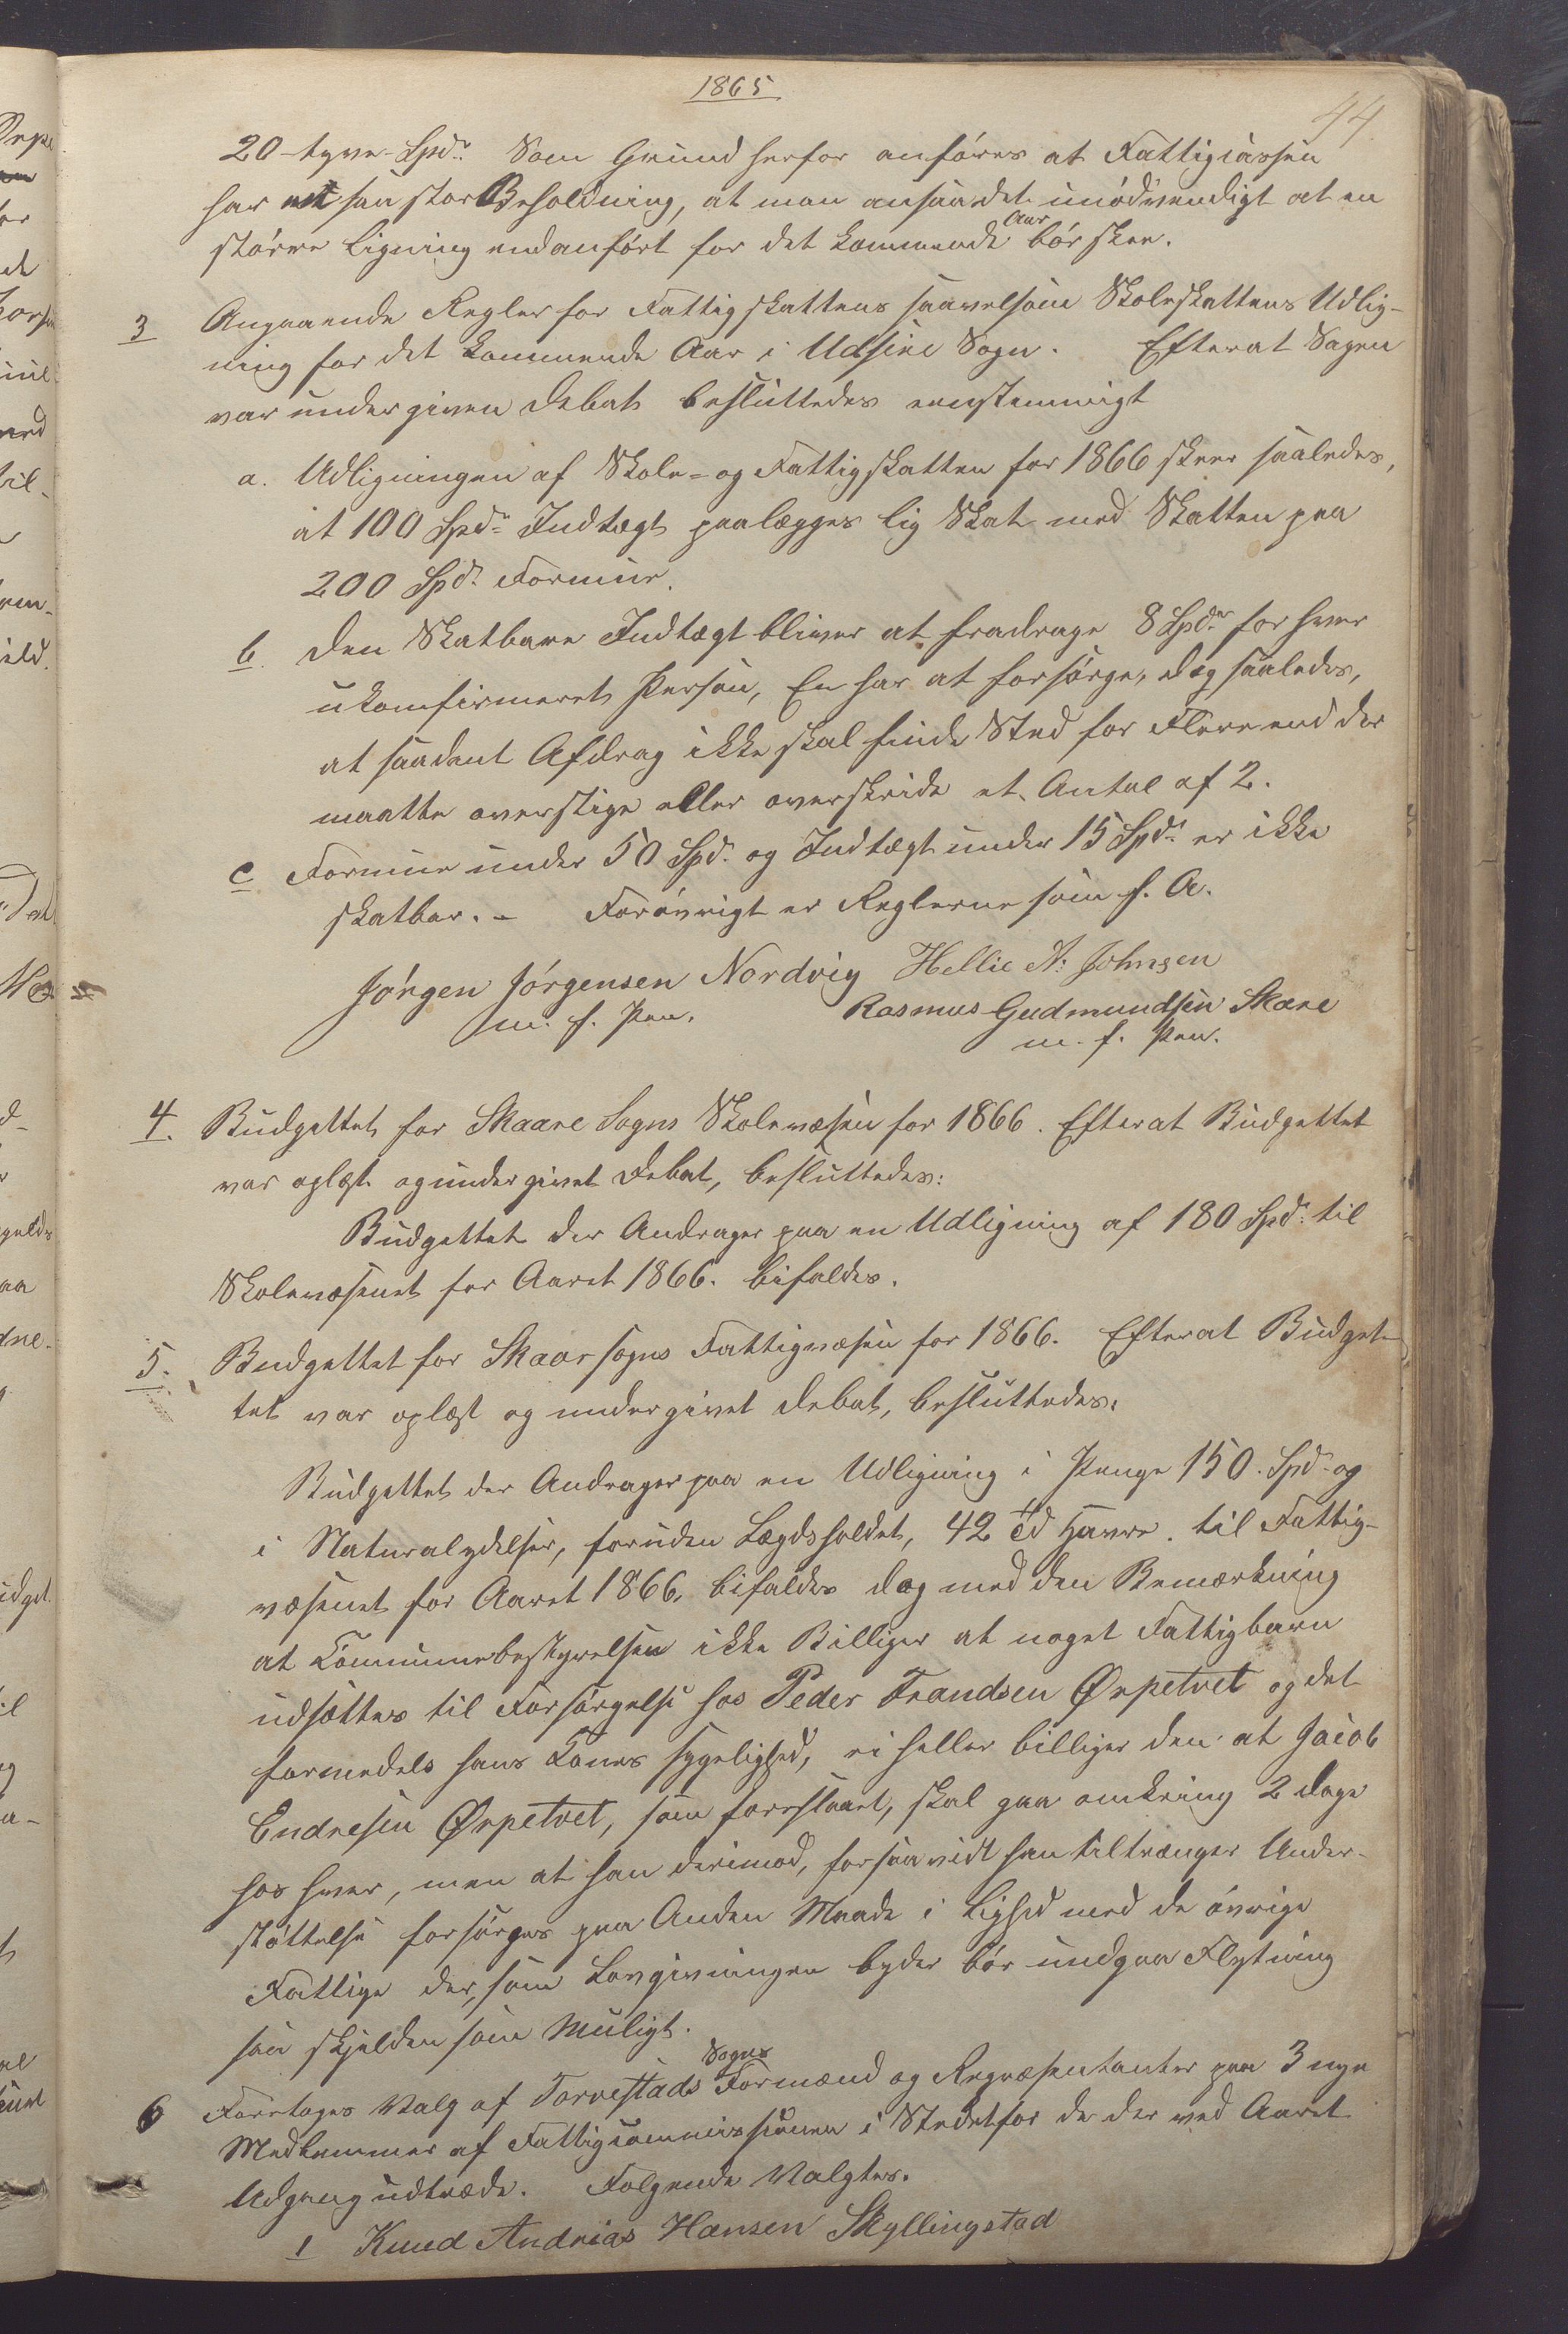 1865
44.
20 - tyve - Spd. Som Grund herfor anføres at Fattigcassen
har en saa stor Beholdning, at man ansaa det unødvendigt at en
større Ligning end anført for det kommende Aar bør skee.
3 Angaaende Regler for Fattigskattens saavelsom Skoleskattens Udlig-
ning for det kommende Aar i Udsire Sogn. Efterat Sagen
var undergiven Debat besluttedes eenstemmigt
a. Udligningen af Skole- og Fattigskatten for 1866 skeer saaledes,
at 100 Spd. Indtægt paalægges lig Skat med Skatten paa
200 Spd. Formue.
b. Den Skatbare Indtægt bliver at fradrage 8 Spdr for hver
ukonfirmeret Person, En har at forsørge, dog saaledes,
at saadant Afdrag ikke skal finde Sted for Flere end der
maatte overstige eller overskride et Antal af 2.
c Formue under 50 Spd. og Indtægt under 15 Spd. er ikke
skatbar. - Forøvrigt er Reglerne som f. A.
Jørgen Jørgensen Nordvig Hellie A: Johnsen
m. f. Pen. Rasmus Gudmundsen Skare
m. f. Pen.
4. Budgettet for Skaare Sogns Skolevæsen for 1866. Efterat Budgettet
var oplæst og undergivet Debat, besluttedes:
Budgettet der Andrager paa en Udligning af 180 Spd. til
Skolevæsenet for Aaret 1866. bifaldes.
5. Budgettet for Skaar sogns Fattigvæsen for 1866. Efterat Budget-
tet var oplæst og undergivet Debat, besluttedes.
Budgettet der Andrager paa en Udligning i Penge 150. Spd. og
i Naturalydelser, foruden Lægdsholdet, 42 Td Havre. til Fattig-
væsenet for Aaret 1866, bifaldes dog med den Bemærkning
at Communebestyrelsen ikke Billiger at noget Fattigbarn
udsættes til Forsørgelse hos Peder Trandsen Ørpetvet og det
formedels hans Kones sygelighed, ei heller billiger den at Jacob
Endresen Ørpetvet, som foreslaaet, skal gaa omkring 2 dage
hos hver, men at han derimod, forsaavidt han tiltrænger Under-
støttelse forsørges paa Anden Maade i Lighed med de øvrige
Fattige der, som Lovgivningen byder bør undgaa Flytning
saa skjelden som Muligt.
6 Foretoges Valg af Torvestads Sogns Formænd og Repræsentanter paa 3 nye
Medlemmer af Fattigcommissionen i Stedetfor de der ved Aaret
Udgang udtræde. Følgende Valgtes.
1 Knud Andrias Hansen Skyllingstad